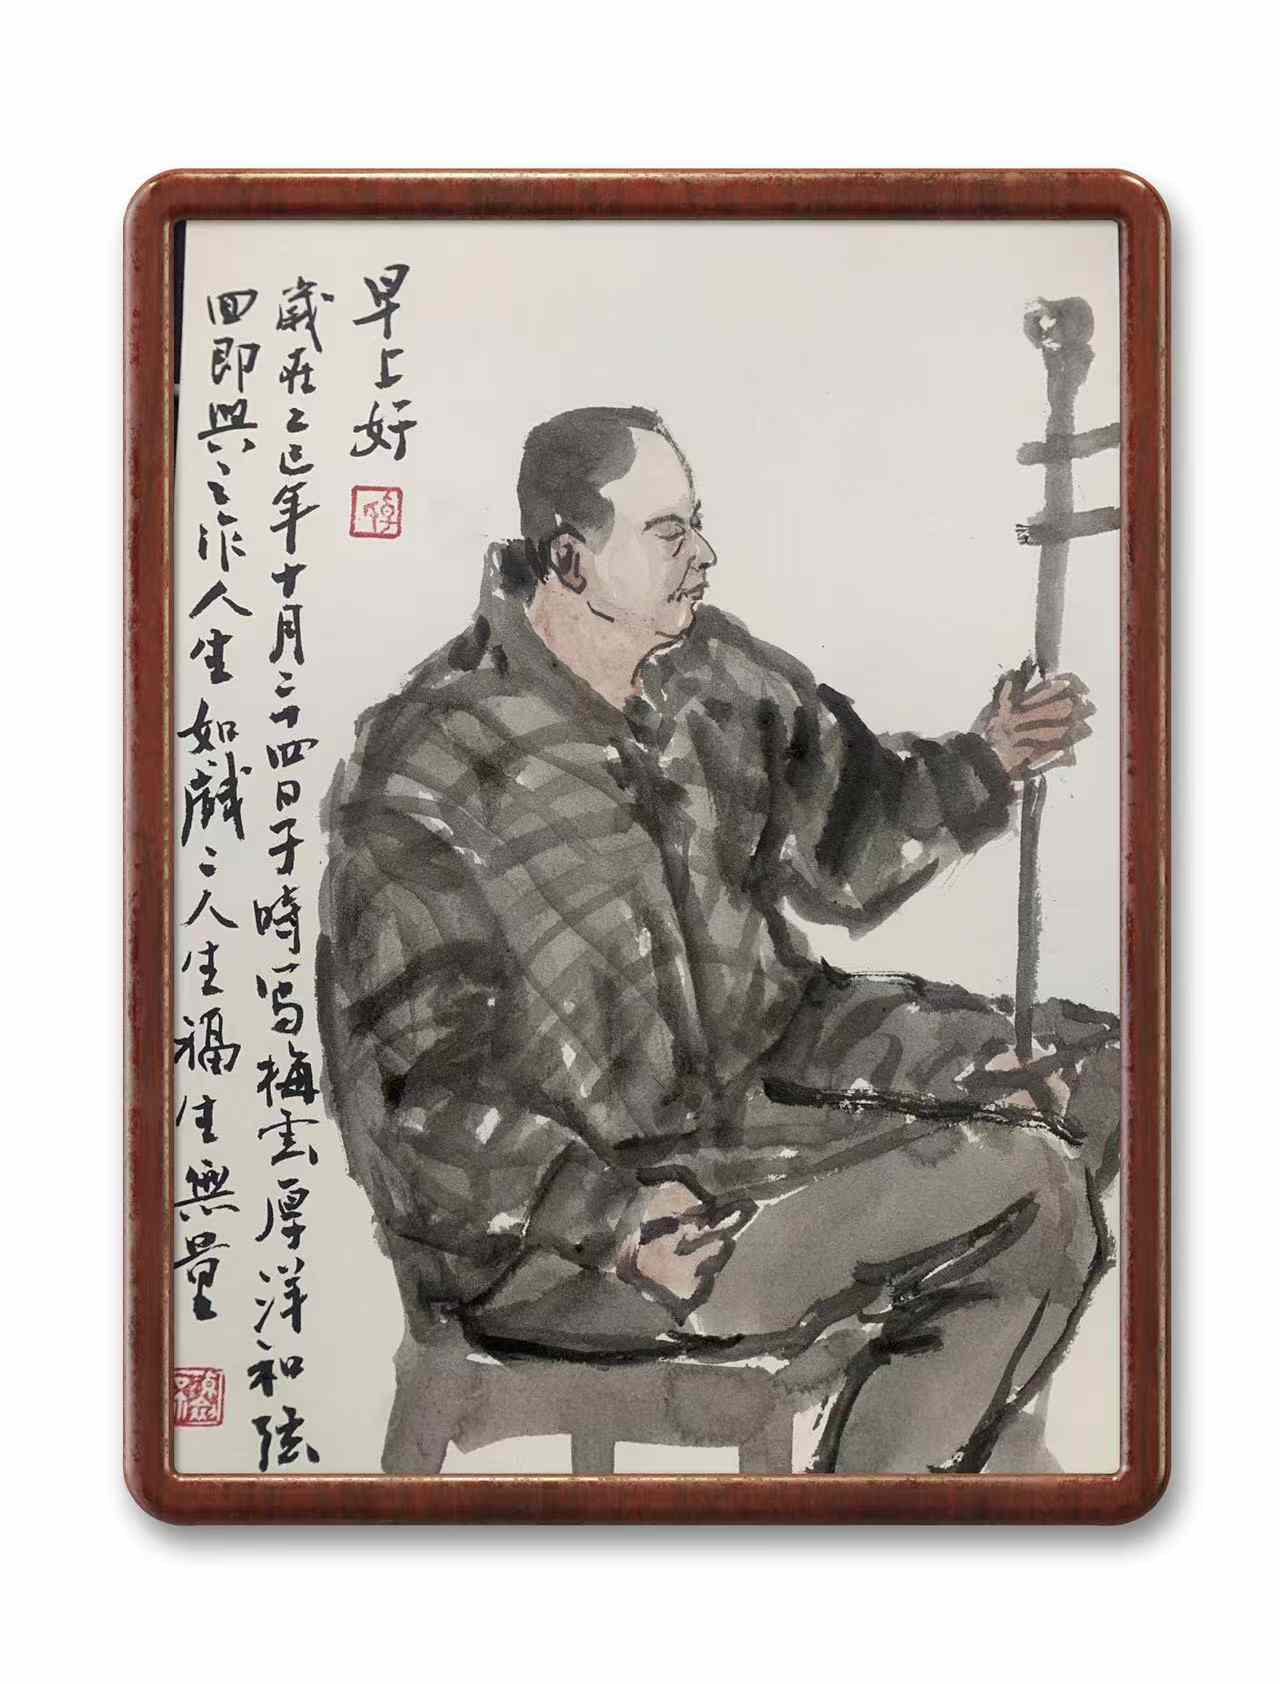 早上好
歲在乙巳年十月二十四日子時写梅雲厚洋和弦
画即興之作人生如戲二人生福生無量